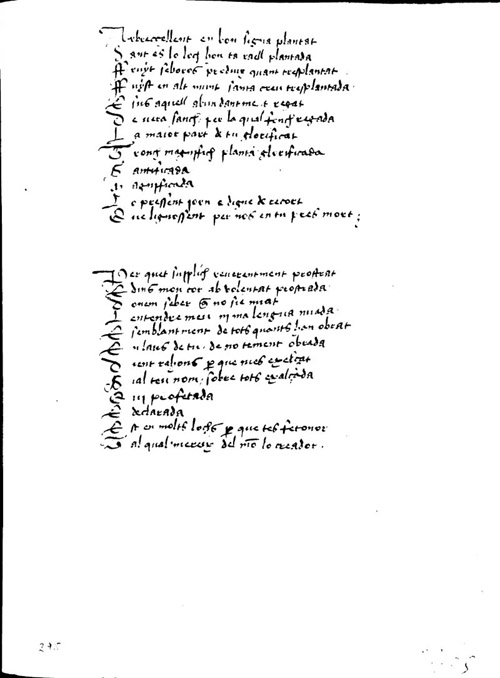 Arbreccellent en bon signa plantat
Sant es lo loch hon ta raell plantada
Fruyt saboros produir quant tresplantat
Fuyst en alt munt santa creu tresplantada
jus aquell abundantment regat
e vera sanch per la qual fonch regada
La maior part de tu glorificat
Tronch magniffich planta glorificada
Santificada
Magnificada
Lo pressent jorn e digne de recort
Que lignossent per nos en tu pres mort

Per quet supplich reverentment prostrat
dins mon cor ab volentat prostrada
saber no sie mirat
entendre meu ni ma lengua nuada
semblantment de tots quants han obrat
laus de tu de no tement obrada
rahons per que mes exelçat
Sia ton nom sobre tots exalçada
profetada
declarada
Est en molts lochs per que tes fet onor
al qual mereix del mon lo creador
295